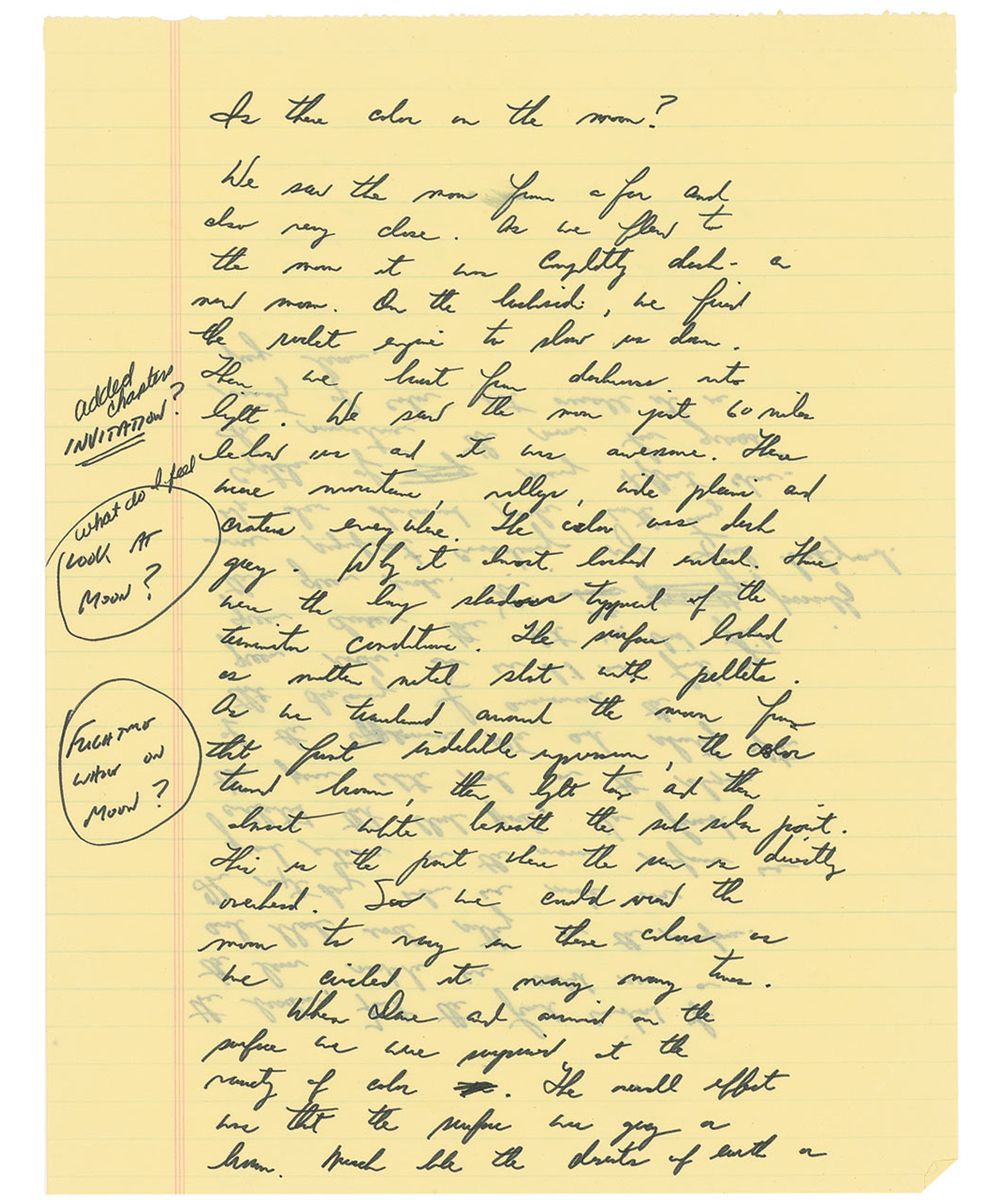 Is there color on the moon?
We saw the moon from a far and
also very close. As we flew to
the moon it was completly dark - a
new moon. On the backside, we fired
the rocket engine to slow us down.
Then we burst from darkness into
light. We saw the moon just 60 miles
below us and it was awesome. There
were mountains, valleys, wide plains and
craters everywhere. The color was dark
grey. Why it almost looked There
were the long shadows typical of the
terminator conditions. The surface looked
as molten metal shot with pellets.
As we traveled around the moon from
that first indelible impression, the color
turned brown, then light tan and then
almost white beneath the sub solar point.
This is the point where the sun is directly
overhead. So we could view the
moon to vary in these colors as
we circled it many many times.
When Dave and arrived on the
surface we were surprised at the
variety of color . The overall effect
was that the surface was gray or
brown. Much like the deserts of earth or
added
chapters
INVITATION?
what do I feel
LOOK AT
MOON?
WHEN ON
MOON?